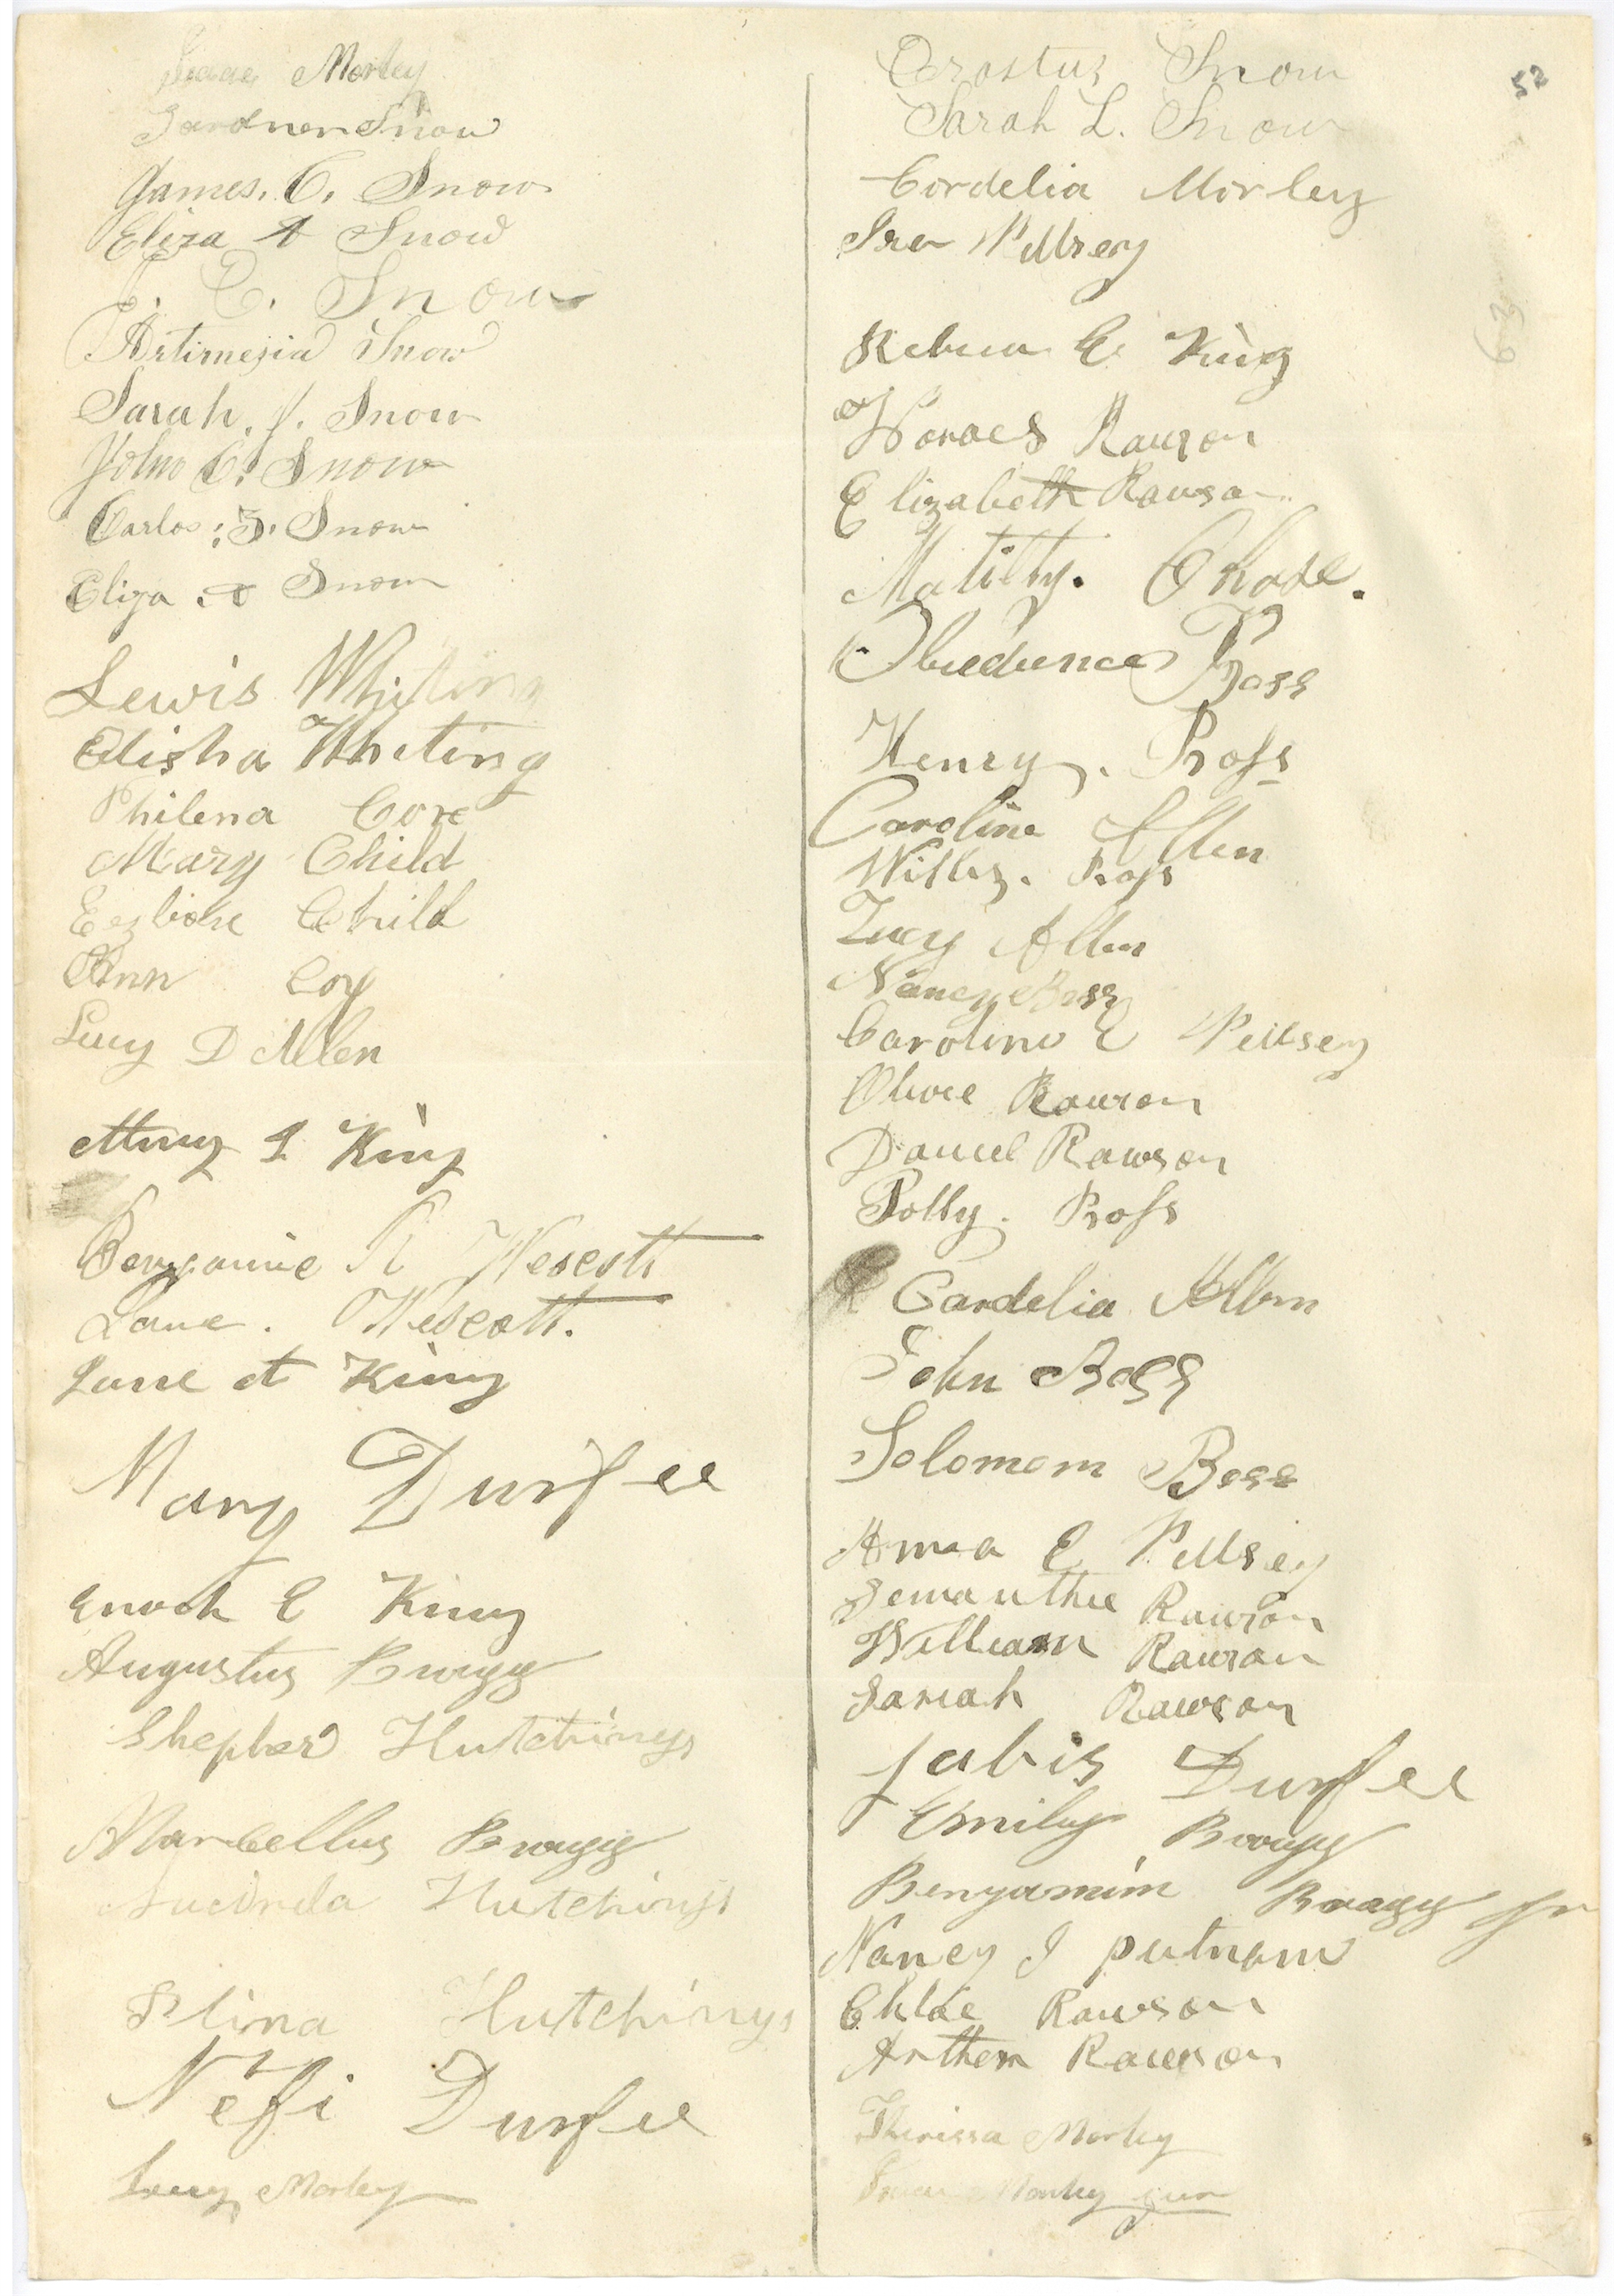 Isaac Morley
Gardner Snow
James. C. Snow
Eliza A Snow
C. Snow
Artimesia Snow
Sarah. J. Snow
John C. Snow
Carlos: S. Snow
Eliza A Snow
Lewis Whiting
Elisha Whiting
Philena Core
Mary Child
Child
Ann Coy
Lucy D Allen
King
Benjamie R Wescott
Wescott.
King
Mary Durfee
Enoch E King
Augustus Bragg
Shepherd Hutchings
Marcellus Bragg
Lucinda Hutchings
Hutchings
Nefi Durfee
Lucy Morley
52
Erastus Snow
Sarah L. Snow
Cordelia Morley
Ira Pillsery
63
E King
Horaces Rawson
Elizabeth Rawson
Matilty. Chase.
Obiedience Boss
Henry. Ross
Caroline Allen
Ross
Lucy Allen
Nancy Boss
Caroline E Pillsey
Olive Rawson
Daniel Rawson
Polly. Ross
Cardelia Allen
John Boss
Solomom Boss
Anna E Pillsey
Rawson
William Rawson
Sariah Rawson
Jabis Durfee
Emily Bragg
Benjamim Bragg Jr
Nancy J putnam
Chloe Rawson
Rawson
Therissa Morley
Isaac Morley jun